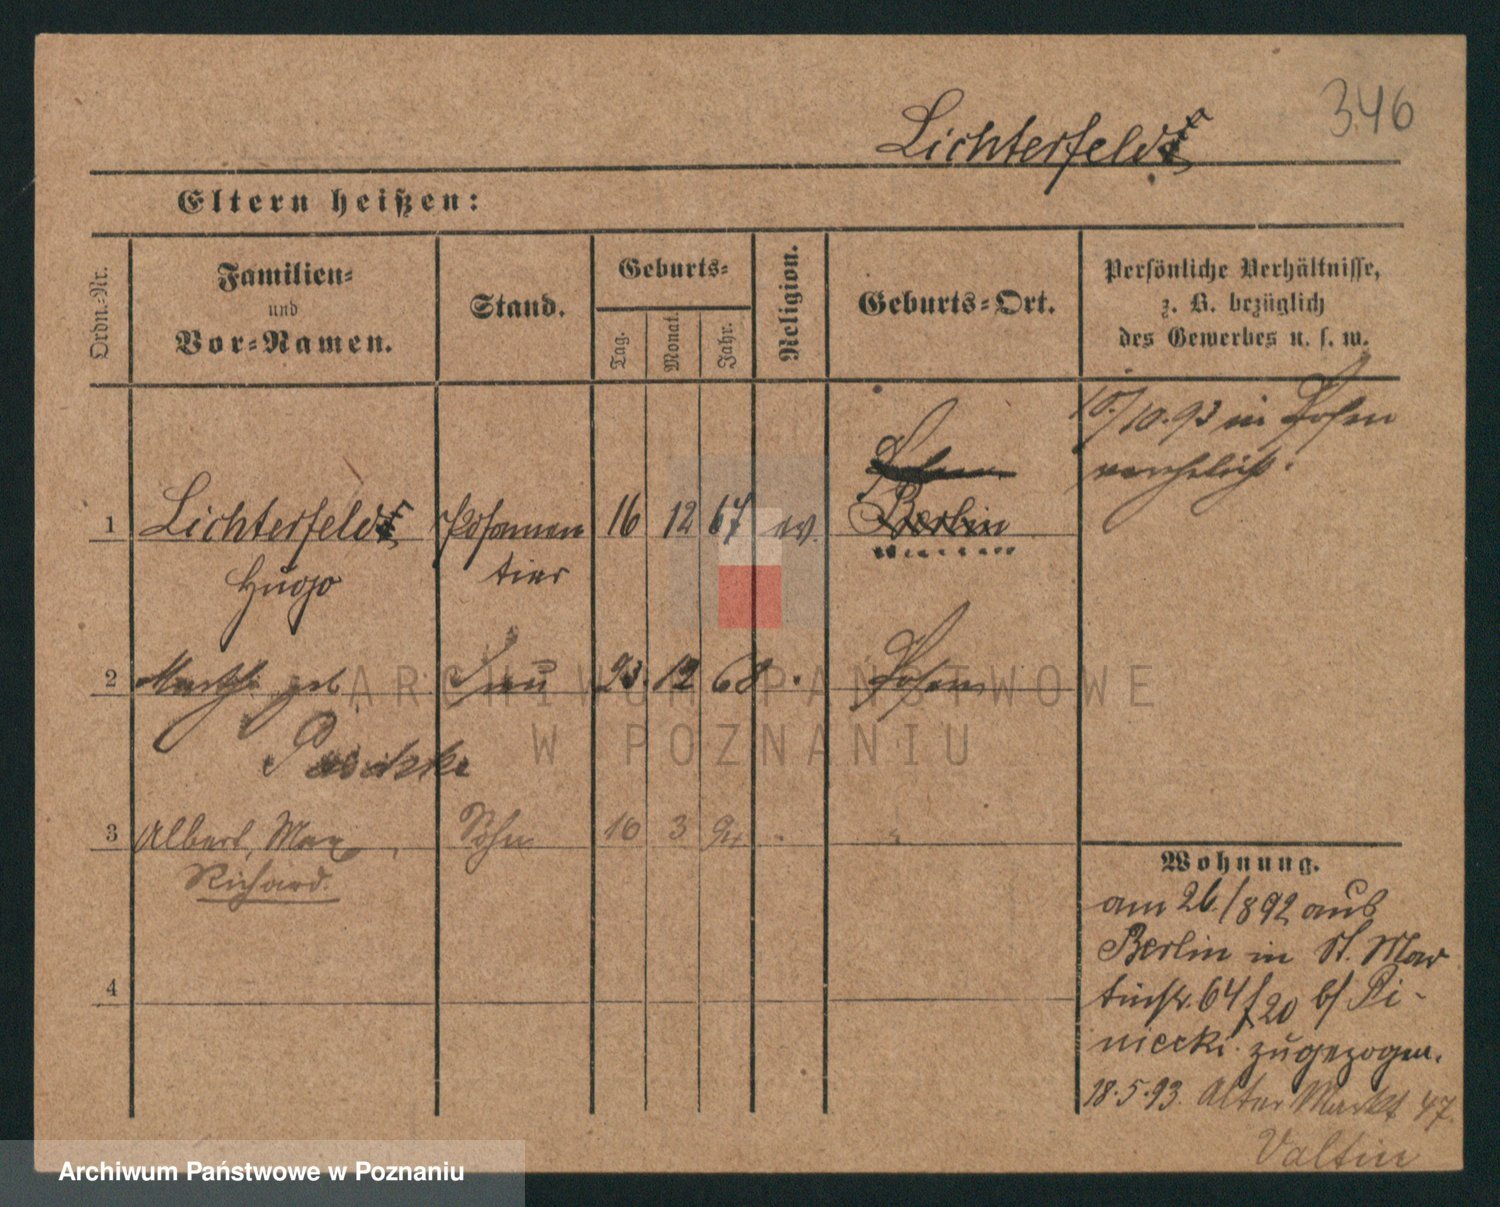 346
Lichterfeld
Eltern heißen:
Ordn.-Nr.
Familien-
und
Vor-Namen.
Stand.
Geburts-
Tag.
Monat.
Jahr.
Religion.
Geburts-Ort.
Persönliche Verhältnisse,
z. B. bezüglich
des Gewerbes u. s. w.
10./10.93 in Posen
verehelicht.
1 Lichterfeld Posamen 16 12 67 ev. Berlin
Hugo tier
2 geb Frau 23. 12 68 Posen
3 Albert, Max Sohn 10 3
Richard.
4
Wohnung.
am 26./8 92 aus
Berlin in St. Mar
tinstr. 64 f 20 b/ Pi-
niecki zugezogen.
18.5.93. Alter Markt 47
Valtin
ARCHIWUM PAŃSTWOWE
W POZNANIU
Archiwum Państwowe w Poznaniu